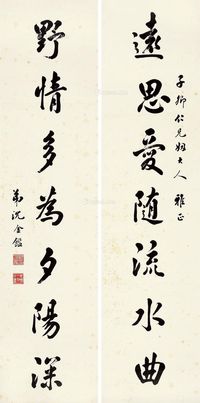 遠思愛随流水曲
子卿仁兄姻大人 雅正
野情多為夕陽深
弟沈金鑑